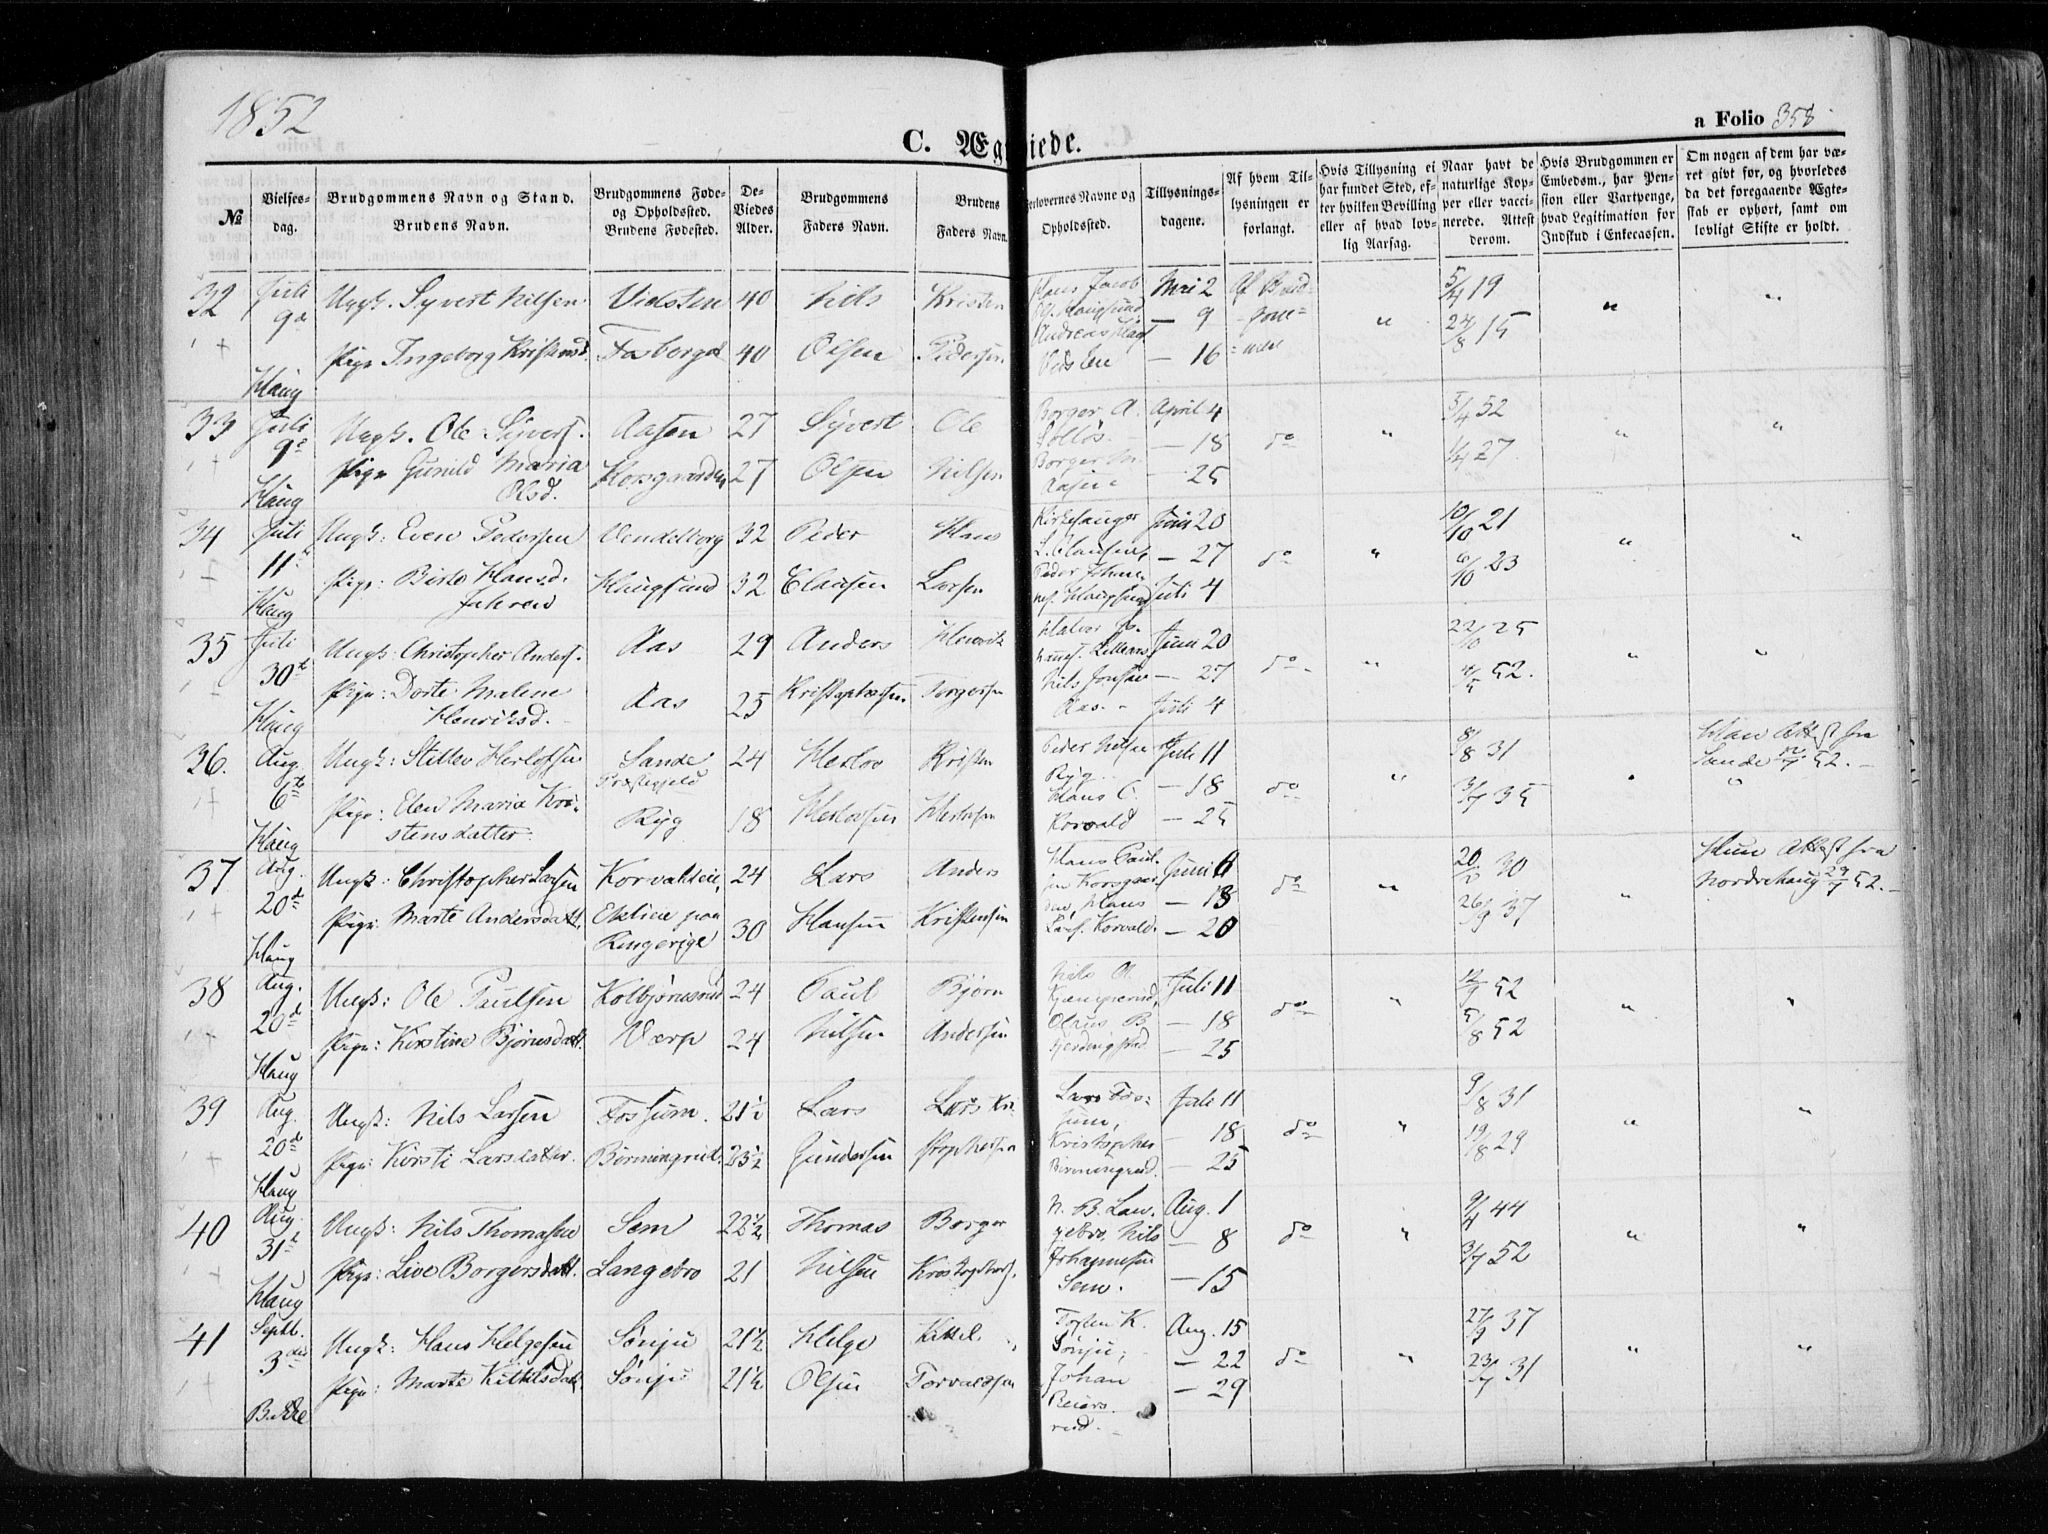 1852
C. Ægteviede.
a Folio 358
№
Vielses-
dag.
Brudgommens Navn og Stand.
Brudens Navn.
Brudgommens Føde-
og Opholdssted.
Brudens Fødested.
De
Viedes
Alder.
Brudgommens
Faders Navn.
Brudens
Faders Navn.
Forlovernes Navne og
Opholdssted.
Tillysnings-
dagene.
Af hvem Til-
lysningen er
forlangt.
Hvis Tillysning ei
har fundet Sted, ef-
ter hvilken Bevilling
eller af hvad lov-
lig Aarsag.
Naar havt de
naturlige Kop-
per eller vacci-
nerede. Attest
derom.
Hvis Brudgommen er
Embedsm., har Pen-
sion eller Vartpenge,
hvad Legitimation for
Indskud i Enkecassen.
Om nogen af dem har væ-
ret givt før, og hvorledes
da det foregaaende Ægte-
skab er ophørt, samt om
lovligt Skifte er holdt.
32 Juli Ungk. Syvert Nilsen Vidsten 40 Nils Kristen Hans Jacob Mai 2 Af Brud- 5/4 19
9de — 9 gom-
Pige Ingeborg Kristensd. Faberget 40 Olsen Pedersen Vidsten — 16 men 24/8 15
Haug
33 Juli Ungk. Ole Syverts. Aasen 27 Syvert Ole Borger A. April 4 5/4 52
9de Solløs — 18 do
Pige Gunild Maria Korsgaarden 27 Olsen Nilsen Aasen — 25 1/4 27
Haug Olsd.
34 Juli Ungk: Even Pedersen Vendelborg 32 Peder Hans Kirkesanger Juni 20 10/10 21
11te L. Clausen, — 27 do
Pige: Birte Hansd. Haugsund 32 Clausen Larsen Peder Johan- Juli 4 6/10 23
Haug Jahren nes. Haugsund
35 Juli Ungk: Christopher Anders. Aas 29 Anders Henrik Juni 20 22/10 25
30te Nils Jonsen — 27 do
Pige: Dorte Malene Aas 25 Kristophersen Torgersen Aas. Juli 4 4/5 52.
Haug Henriksd.
36. Aug. Ungk: Stillev Herlofsen Sande 24 Herlov Kristen Peder Nilsen Juli 11 8/8 31 Han Attest fra
6te Præstegjeld Ryg — 18 do Sande 52.
Pige: Elen Maria Kri- Ryg 18 Herlovsen Herlofsen Hans C. 3/7 35
Haug stensdatter. Korvald — 25
37 Aug. Ungk: Christopher Larsen Korvaldeie, 24 Lars Anders Hans Paul- Juni 6 20/ 30 Hun Attest fra
20de sen Korsgaar- — 13 do Nordrehaug 29/7 52.
Pige: Marte Andersdatt. paa 30 Hansen Kristensen den, Hans — 20 26/9 37
Haug Ringerige Lars. Korvald.
38 Aug. Ungk: Ole Paulsen Kolbjørnsrud 24 Paul Bjørn Nils A. Juli 11 12/7 52
20de — 18 do
Pige: Kirstine Bjørnsdatt. Værp 24 Nilsen Andersen Olaus B. — 25 5/8 52
Haug
39 Aug. Ungk: Nils Larsen Fossum. 21½ Lars Lars Kri- Lars Fos- Juli 11 9/8 31
20de sum, — 18 do
Pige: Kirsti Larsdatter. Børmingrud. 23½ Gundersen stophersen Kristopher — 25 19/8 29
Haug Børmingrud.
40 Aug. Ungk: Nils Thomasen Sem 22½ Thomas Borger N. B. Lan- Aug. 1 9/4 44
31te gebro, Nils — 8 do
Pige: Live Borgersdatt. Langebro 21 Nilsen Kristophers. Johannesen — 15 3/7 52
Haug Sem.
41 Septb. Ungk: Hans Helgesen Sønju 21½ Helge Kittil Torsten K. Aug. 15 27/9 37
3die Sønju, — 22 do
Pige: Marte Kittilsdatt. Sønju 21½ Olsen Torvaldsen Johan — 29 23/7 31
Bakke Reiers-
rud.